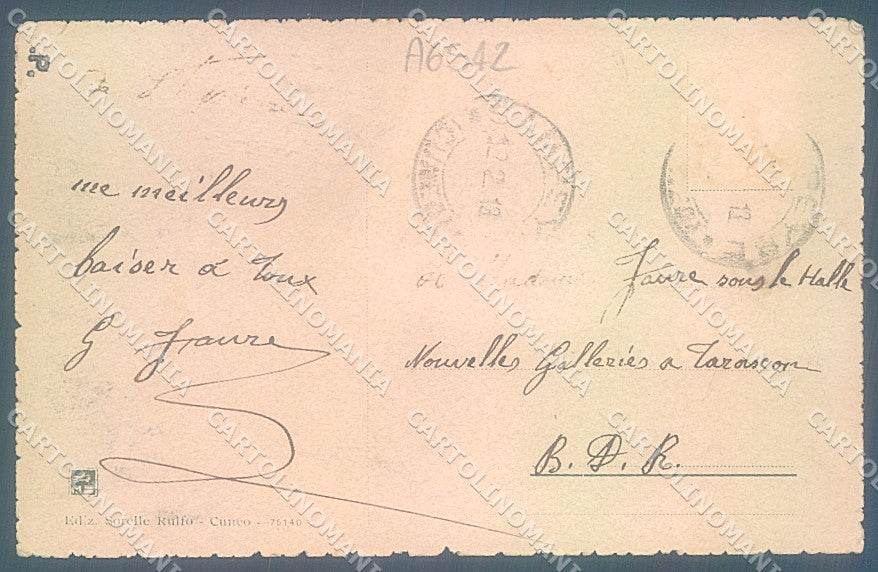 A6542
.P.
12.2.18
me meilleurs
baiser a toux
G Faure
Faure sous le Halle
Nouvelles Galleries a Tarascon
B. D. R.
Ed.z. Sorelle Rulfo - Cuneo - 76140
CARTOLINOMANIA